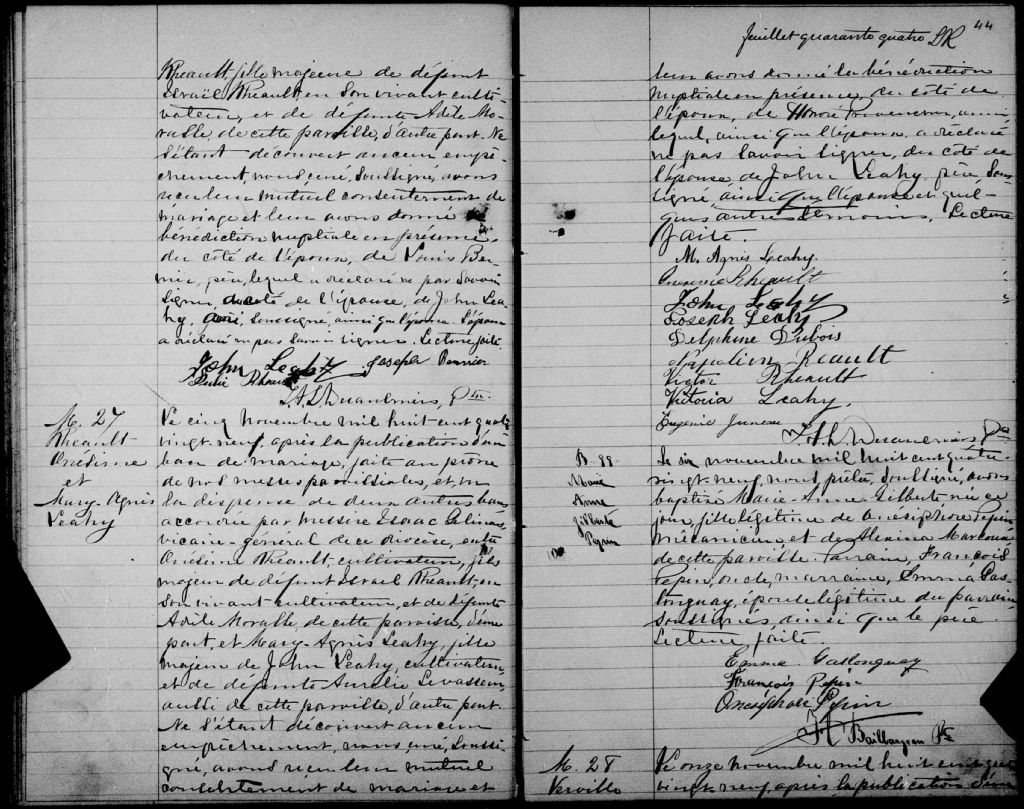 Rheault, fille majeure de défunt
Israël Rheault, en son vivant culti-
vateur, et de défunte Adèle Mo-
ralle, de cette paroisse, d'autre part. Ne
s'étant découvert aucun empê-
chement, nous, curé, soussigné, avons
reçu leur mutuel consentement de
mariage et leur avons donné la
bénédiction nuptiale en présence,
du côté de l'époux, de Louis Ber-
nier, père, lequel a déclaré ne pas savoir
signer, du côté de l'épouse, de John Lea-
hy, ami, soussigné, ainsi que l'époux. L'épouse
a déclaré ne pas savoir signer. Lecture faite.
John Leahy Joseph Bernier
Rheault
Ptre.
M. 27
Rheault
Onésime
et
Mary-Agnès
Leahy
Le cinq novembre mil huit cent quatre
vingt-neuf, après la publication d'un
ban de mariage, faite au prône
de nos messes paroissiales, et vu
la dispense de deux autres bans
accordée par messire Isaac Gélinas,
vicaire-général de ce diocèse, entre
Onésime Rheault, cultivateur, fils
majeur de défunt Israël Rheault, en
son vivant cultivateur, et de défunte
Adèle Moralle de cette paroisse, d'une
part, et Mary-Agnès Leahy, fille
majeure de John Leahy, cultivateur,
et de défunte Aurélie Levasseur,
aussi de cette paroisse, d'autre part.
Ne s'étant découvert aucun
empêchement, nous, curé, soussi-
gné, avons reçu leur mutuel
consentement de mariage et
feuillet quarante quatre 44
leur avons donné la bénédiction
nuptiale en présence, du côté de
l'époux, de Honoré Provencher, ami,
lequel, ainsi que l'époux, a déclaré
ne pas savoir signer, du côté de
l'épouse, de John Leahy, père, sous-
signé, ainsi que l'épouse et quel-
ques autres témoins. Lecture
faite.
M. Agnès Leahy.
Rheault
John Leahy
Joseph Leahy
Delphine Dubois
Napoléon Réault
Victor Rheault
Victoria Leahy.
Eugénie Juneau
Ptre
B-99
Marie
Anne
Gilberte
Pepin
Le six novembre mil huit cent quatre-
vingt-neuf, nous, prêtre, soussigné, avons
baptisé Marie-Anne-Gilberte, née ce
jour, fille légitime de Onésiphore Pepin,
mécanicien et de Marcoux
de cette paroisse. Parrain, François
Pepin, oncle, marraine, Emma Gas-
tonguay, épouse légitime du parrain,
soussignés ainsi que le père.
Lecture faite.
Emma Gastonguay
François Pepin
Onésiphore Pepin
Baillargeon Ptre
M. 28
Verville
Le onze novembre mil huit cent quatre
vingt-neuf, après la publication d'un